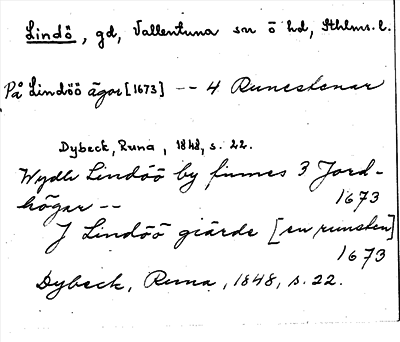 Lindö, gd, Vallentuna sn ö hd, Sthlms. l.
På Lindöö ägor [1673] -- 4 Runestenar
Dybeck, Runa, 1848, s. 22.
Wydh Lindöö by finnes 3 Jord-
högar -- 1673
J Lindöö giärde [en runsten]
1673
Dybeck, Runa, 1848, s. 22.